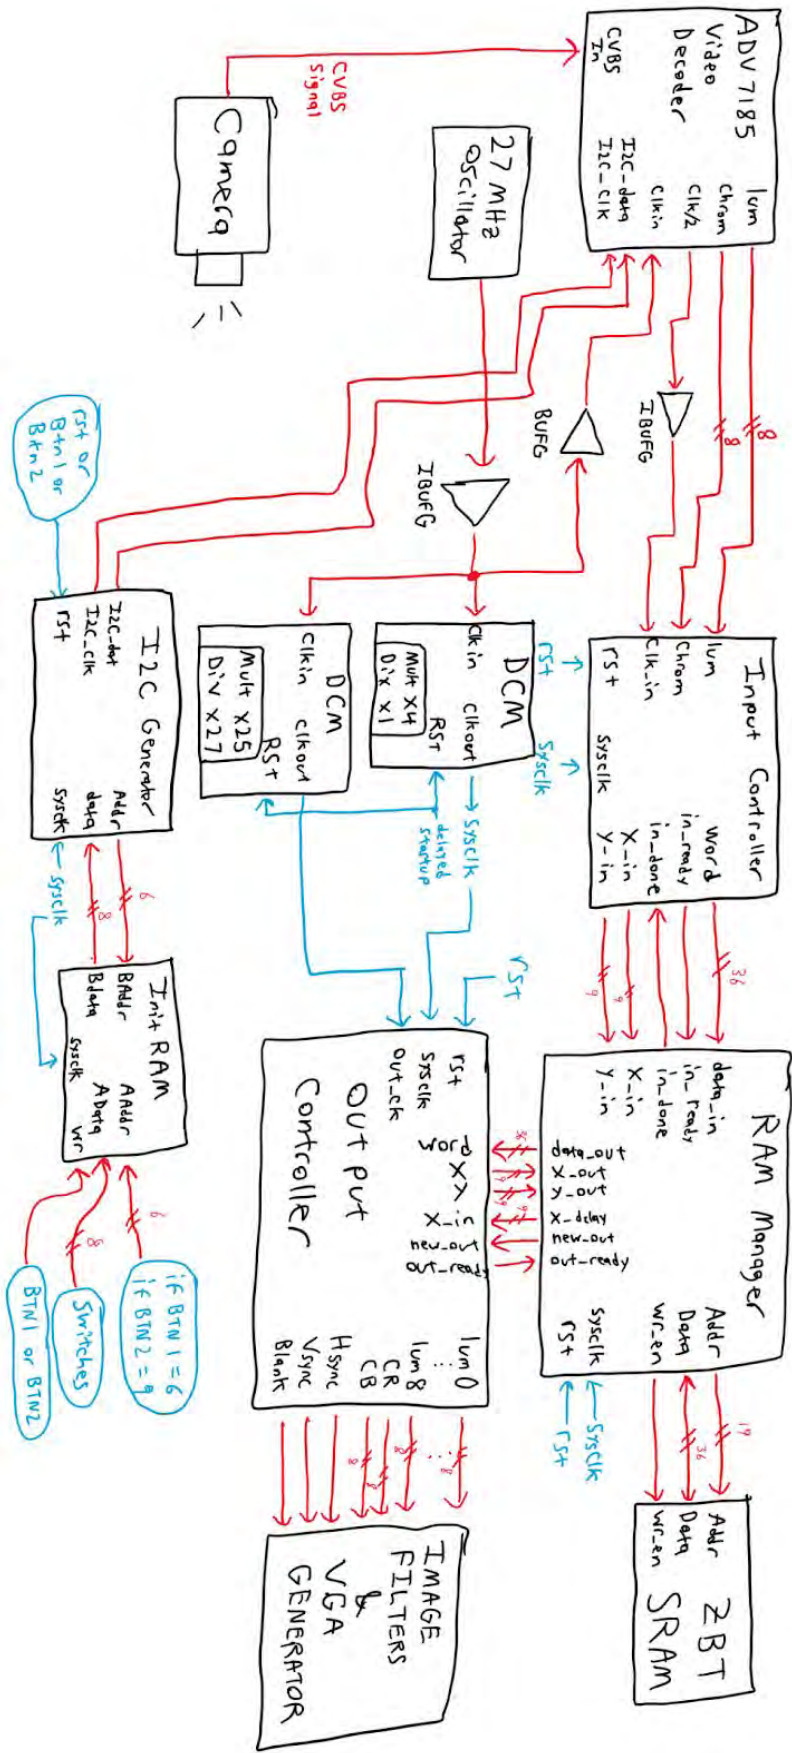 ADV7185
Video
Decoder
CVBS
In
lum
Chrom
Clk/2
Clkin
I2C-data
I2C_Clk
CVBS
signal
Camera
27 MHz
Oscillator
8
8
IBUFG
BUFG
IBUFG
Input Controller
lum
Chrom
Clk_in
rst
sysclk
word
in_ready
in_done
X_in
Y-in
rst
Sysclk
DCM
Clkin
Clkout
Mult x4
Div x1
RST
DCM
Clkin
Clkout
Mult x25
Div x27
RST
Sysclk
delayed
startup
rst or
Btn1 or
Btn2
I2C Generator
I2C-dat
I2C_clk
rst
Addr
data
sysclk
sysclk
6
8
Init RAM
BAddr
Bdata
sysclk
AAddr
AData
wr
6
8
if BTN1 = 6
if BTN2 = 9
Switches
BTN1 or BTN2
36
9
9
RAM Manager
data_in
in_ready
in_done
X_in
Y-in
data_out
X_out
Y_out
X_delay
new_out
out_ready
Addr
Data
wr_en
sysclk
rst
Sysclk
rst
19
36
Addr
Data
wr_en
ZBT
SRAM
rst
36
9
9
9
Output
Controller
rst
sysclk
out_clk
word
X
Y
X_in
new_out
out_ready
lum0
⋮
lum8
CR
CB
Hsync
Vsync
Blank
8
⋮
8
8
8
IMAGE
FILTERS
&
VGA
GENERATOR